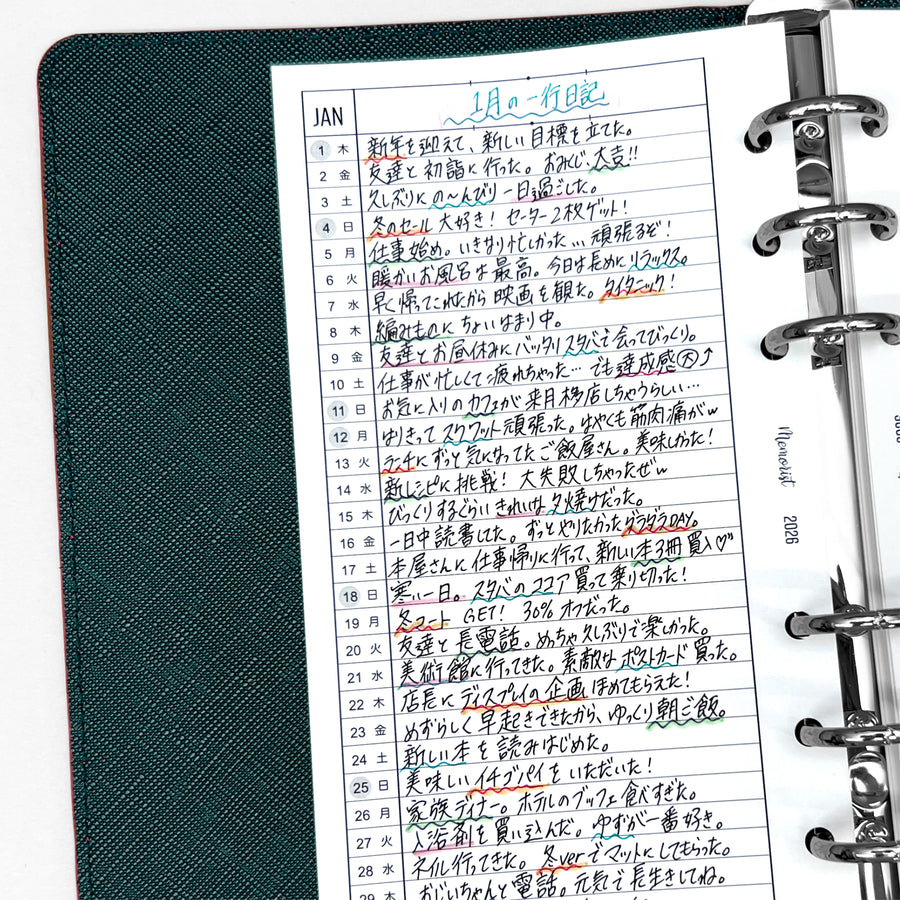 JAN
1月の一行日記
1 木 新年を迎えて、新しい目標を立てた。
2 金 友達と初詣に行った。おみじ、大吉!!
3 土 久しぶりにの〜んびり一日過ごした。
4 日 冬のセール大好き! セーター2枚ゲット!
5 月 仕事始め。いきなり忙しかった…頑張るぞ!
6 火 暖かいお風呂は最高。今日は長めにリラックス。
7 水 早く帰ってこれたから映画を観た。タイタニック!
8 木 編みものにちょいはまり中。
9 金 友達とお昼休みにバッタリスタバで会ってびっくり。
10 土 仕事が忙しくて疲れちゃった…でも達成感大↑
11 日 お気に入りのカフェが来月移店しちゃうらしい…
12 月 はりきってスクワット頑張った。はやくも筋肉痛がw
13 火 ランチにずっと気になってたご飯屋さん。美味しかった!
14 水 新レシピに挑戦! 大失敗しちゃったぜw
15 木 びっくりするぐらいきれいな夕焼けだった。
16 金 一日中読書してた。ずっとやりたかったダラダラDAY。
17 土 本屋さんに仕事帰りに行って、新しい本3冊買入♡"
18 日 寒い一日。スタバのココア買って乗り切った!
19 月 冬コート GET! 30% オフだった。
20 火 友達と長電話。めっちゃ久しぶりで楽しかった。
21 水 美術館に行ってきた。素敵なポストカード買った。
22 木 店長にディスプレイの企画ほめてもらえた!
23 金 めずらしく早起きできたから、ゆっくり朝ご飯。
24 土 新しい本を読みはじめた。
25 日 美味しいイチゴパイをいただいた!
26 月 家族ディナー。ホテルのブッフェ食べすぎた。
27 火 入浴剤を買い込んだ。ゆずが一番好き。
28 水 ネイル行ってきた。冬verでマットにしてもらった。
29 木 おじいちゃんと電話。元気で長生きしてね。
Memorist 2026